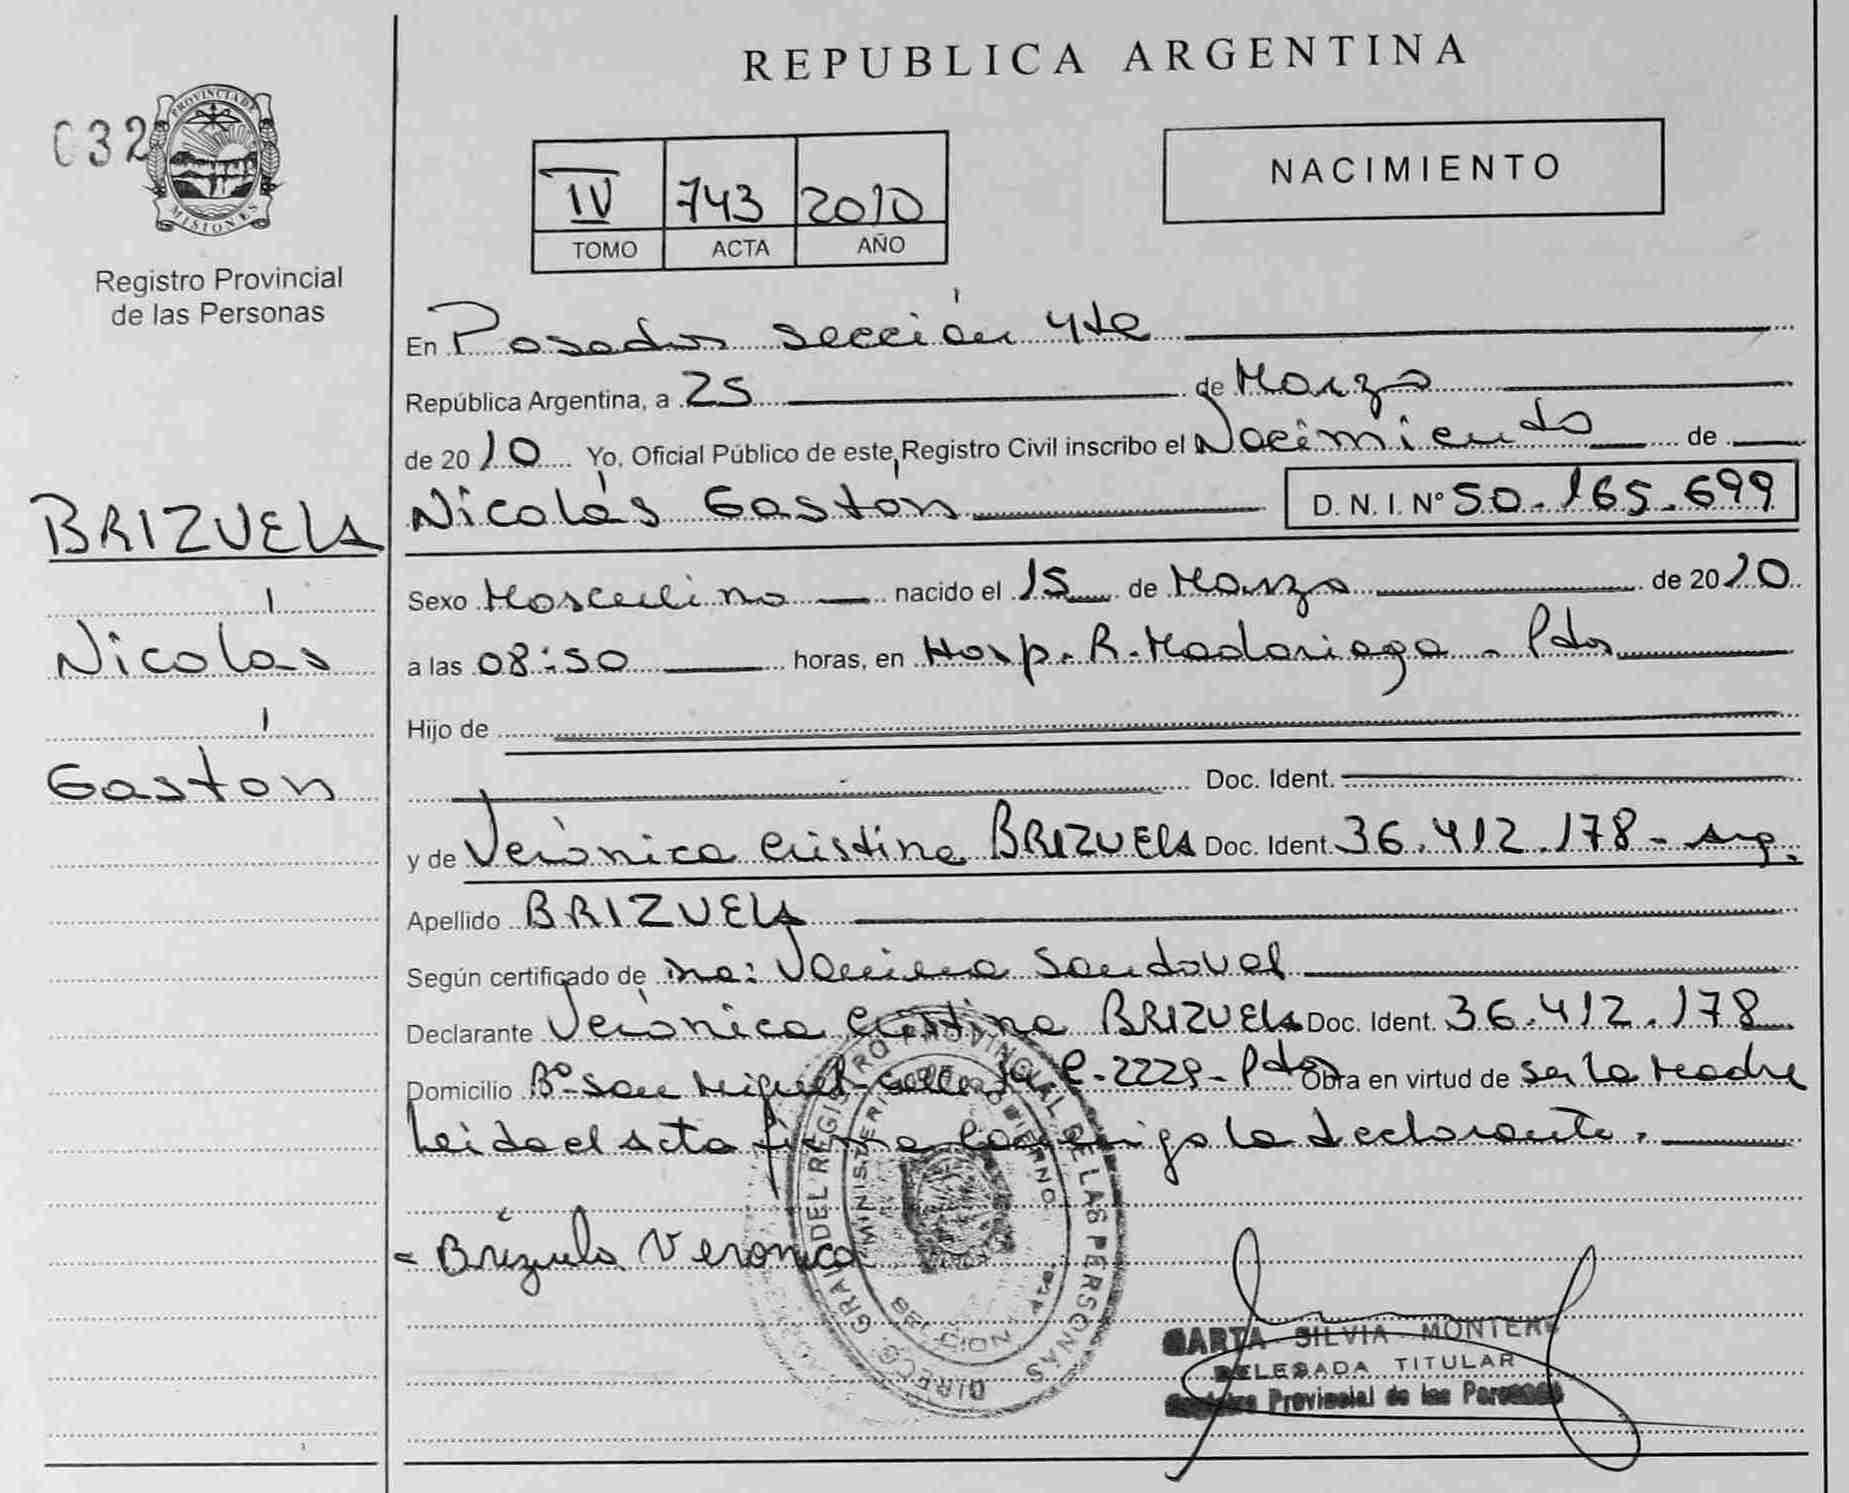 REPUBLICA ARGENTINA
032
PROVINCIA DE MISIONES
Registro Provincial
de las Personas
IV 743 2010
TOMO ACTA AÑO
NACIMIENTO
En Posadas sección 4ta
República Argentina, a 25 de Marzo
de 2010 Yo, Oficial Público de este Registro Civil inscribo el Nacimiento de
Nicolás Gastón D. N. I. Nº 50.165.699
BRIZUELA
Nicolás
Gastón
Sexo Masculino nacido el 15 de Marzo de 2010
a las 08:50 horas, en Hosp. R. Madariaga - Pdas
Hijo de
Doc. Ident.
y de Verónica Cristina BRIZUELA Doc. Ident. 36.412.178 - Arg.
Apellido BRIZUELA
Según certificado de Sandoval
Declarante Verónica Cristina BRIZUELA Doc. Ident. 36.412.178
Domicilio Bº San Miguel - Calle C-2229 - Pdas Obra en virtud de ser la Madre
Leida el Acta firma conmigo la declarante.
Brizuela Veronica
DIREC. GRAL. DEL REGISTRO PROVINCIAL DE LAS PERSONAS
MINISTERIO DE GOBIERNO
SILVIA MONTERO
DELEGADA TITULAR
Registro Provincial de las Personas